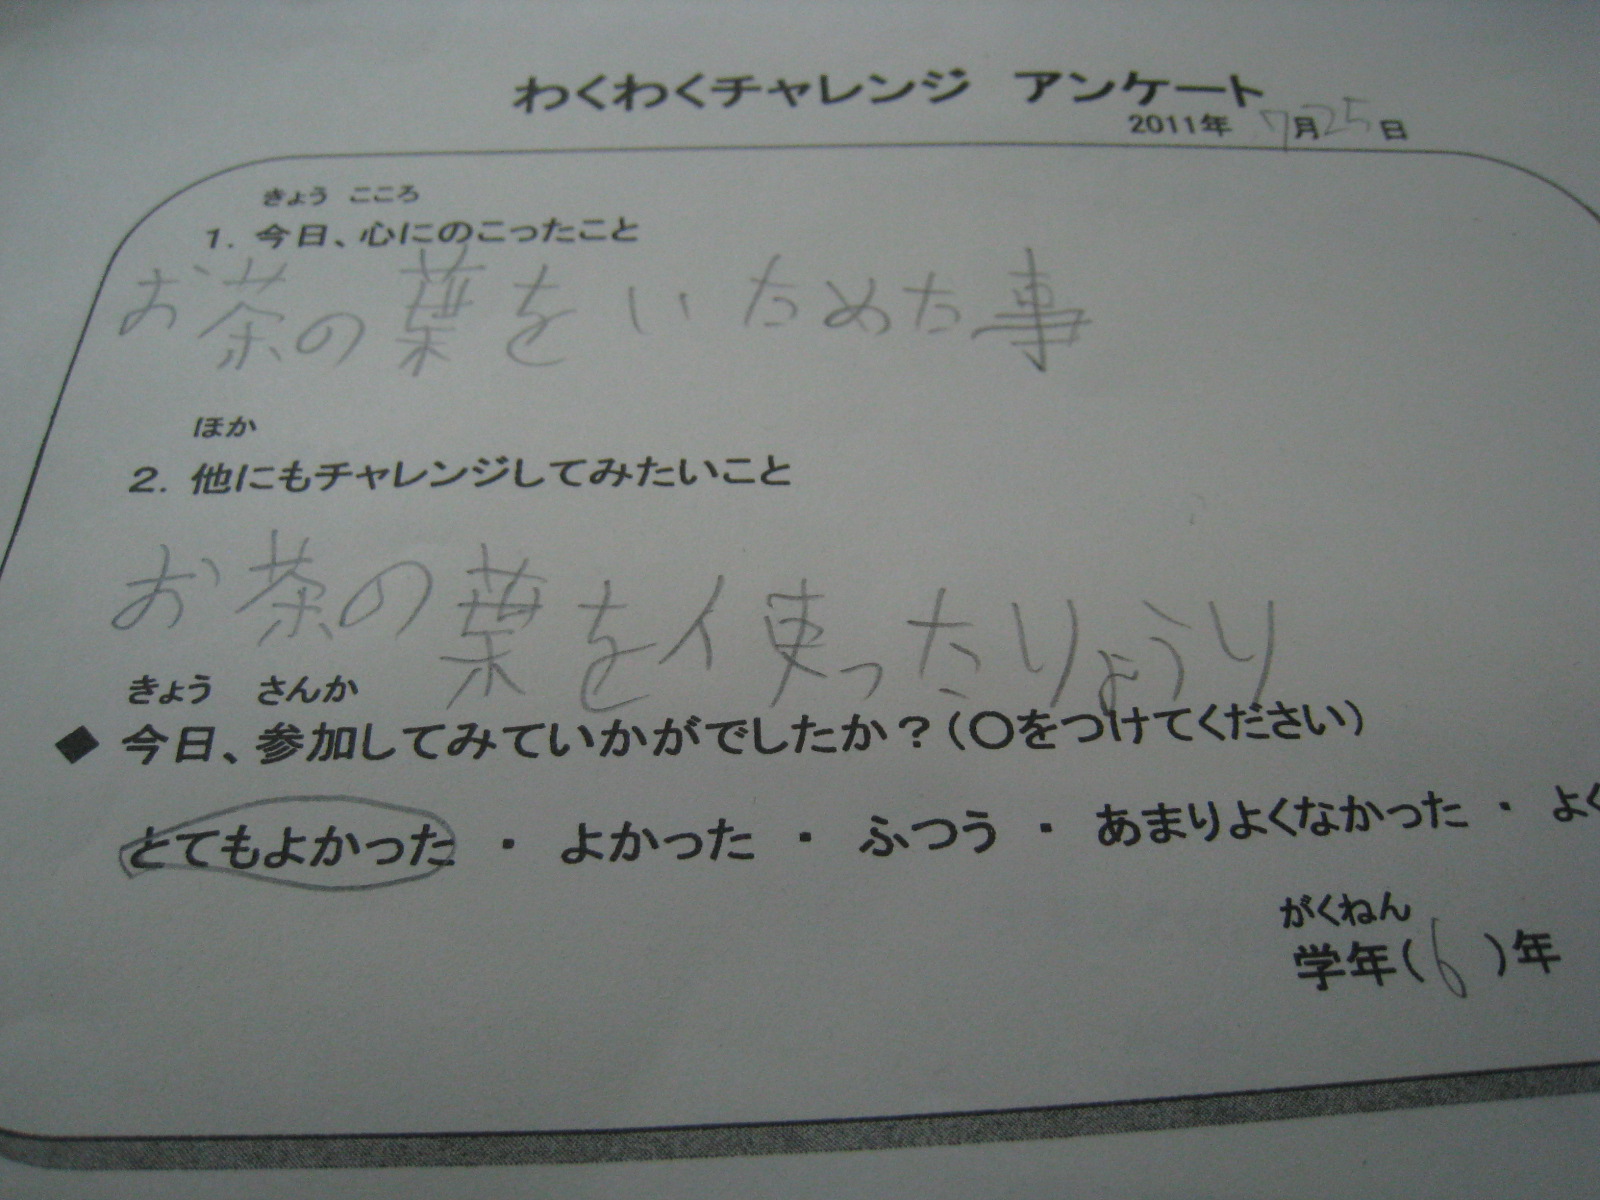 わくわくチャレンジ アンケート
2011年 7月25日
きょう こころ
1. 今日、心にのこったこと
お茶の葉をいためた事
ほか
2. 他にもチャレンジしてみたいこと
お茶の葉を使ったりょうり
きょう さんか
◆ 今日、参加してみていかがでしたか？(○をつけてください)
とてもよかった ・ よかった ・ ふつう ・ あまりよくなかった ・ よく
がくねん
学年(6)年